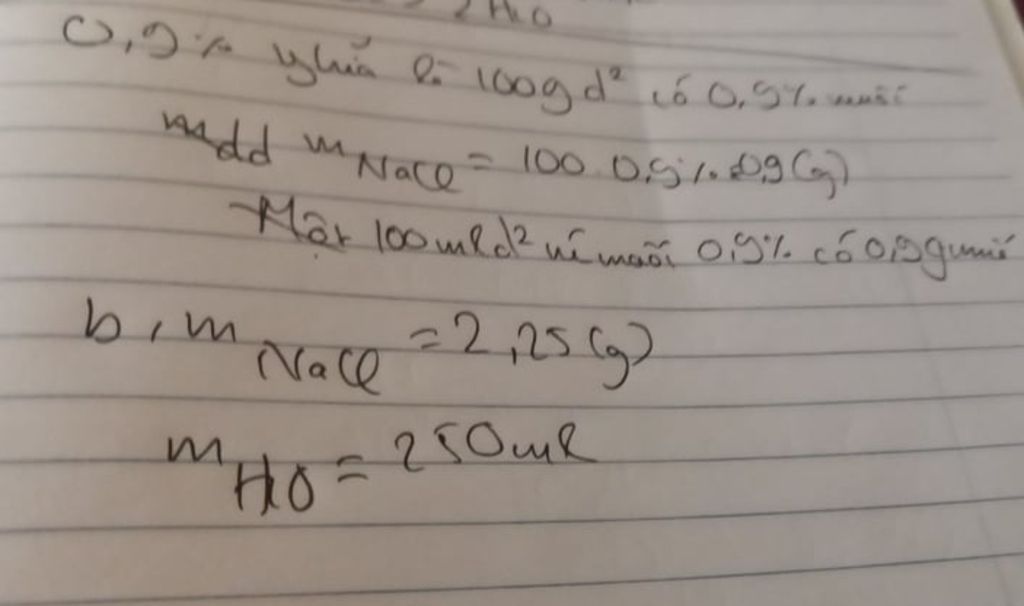 2H₂O
0,9% nghĩa là 100g d² có 0,9% muối
mdd m NaCl = 100 0,9% 0,9 (g)
Một 100ml d² nc muối 0,9% có 0,9g muối
b, m NaCl = 2,25 (g)
m H2O = 250ml